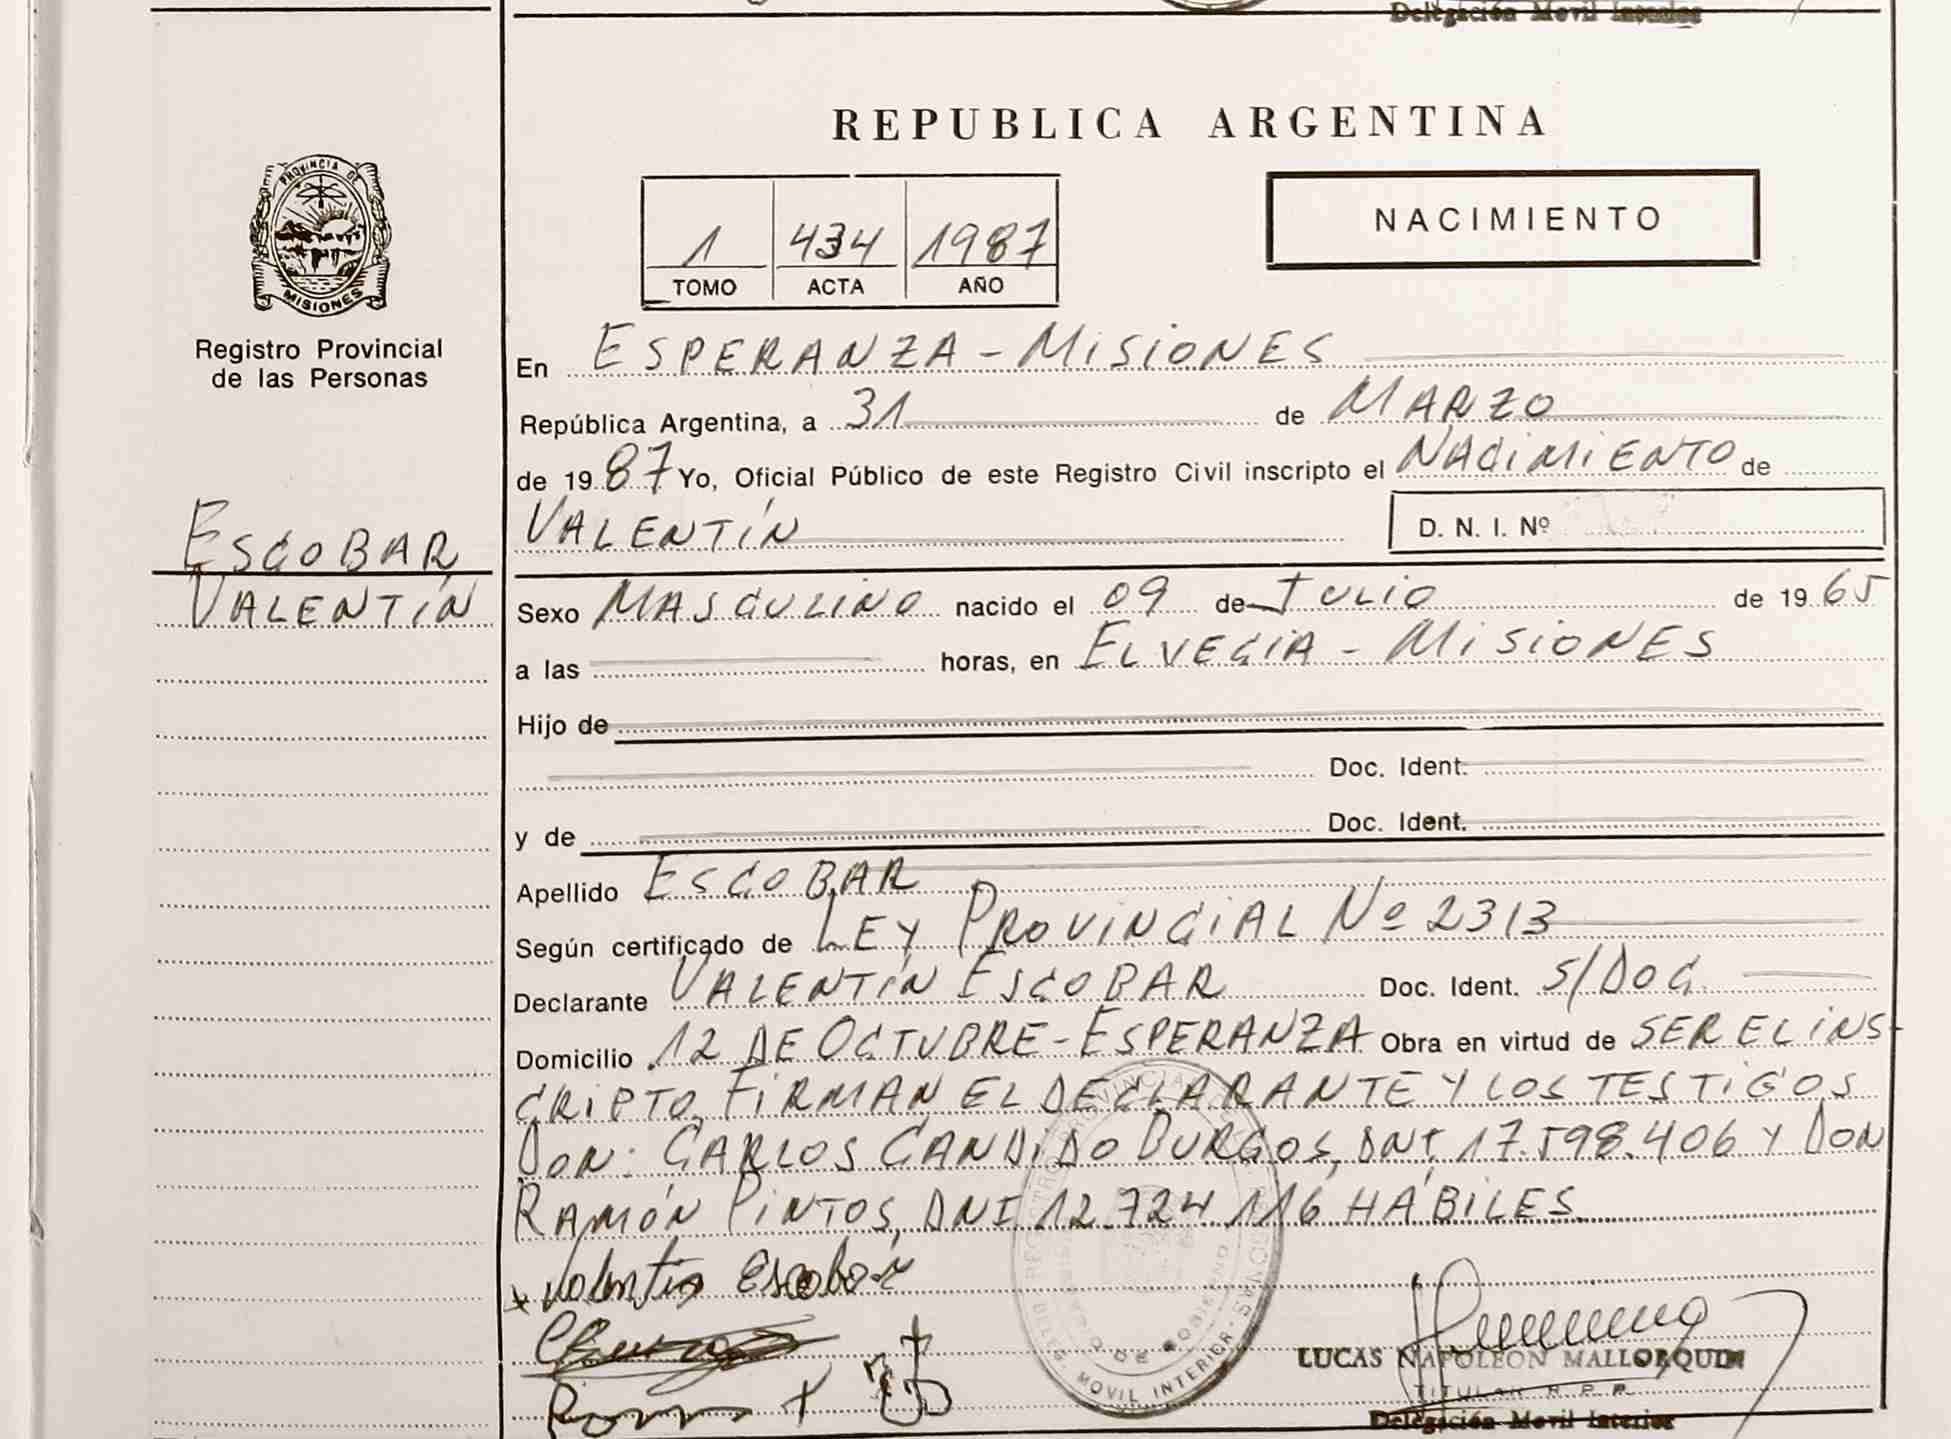 Delegación Movil Interior
REPUBLICA ARGENTINA
PROVINCIA DE
MISIONES
Registro Provincial
de las Personas
1 434 1987
TOMO ACTA AÑO
NACIMIENTO
En ESPERANZA - MISIONES
República Argentina, a 31 de MARZO
de 1987 Yo, Oficial Público de este Registro Civil inscripto el NACIMIENTO de
VALENTÍN D. N. I. Nº
ESCOBAR
VALENTÍN
Sexo MASCULINO nacido el 09 de JULIO de 1965
a las horas, en ELVECIA - MISIONES
Hijo de
Doc. Ident.
y de Doc. Ident.
Apellido ESCOBAR
Según certificado de LEY PROVINCIAL Nº 2313
Declarante VALENTÍN ESCOBAR Doc. Ident. S/DOC.
Domicilio 12 DE OCTUBRE - ESPERANZA Obra en virtud de SER EL INS-
CRIPTO, FIRMAN EL DECLARANTE Y LOS TESTIGOS
DON: CARLOS CANDIDO BURGOS, DNI, 17.598.406 Y DON
RAMÓN PINTOS, DNI 12.724.116 HÁBILES
Valentin Escobar
DELEG. MOVIL INTERIOR
LUCAS NAPOLEON MALLORQUIN
TITULAR R. P. P.
Delegación Movil Interior